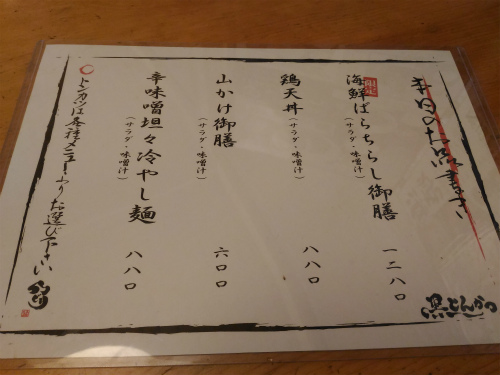 本日のお品書き
限定
海鮮ばらちらし御膳
(サラダ・味噌汁)
一二八〇
鶏天丼
(サラダ・味噌汁)
八八〇
山かけ御膳
(サラダ・味噌汁)
六〇〇
辛味噌坦々冷やし麺
(サラダ・味噌汁)
八八〇
トンカツは各種メニューよりお選び下さい
黒とんかつ